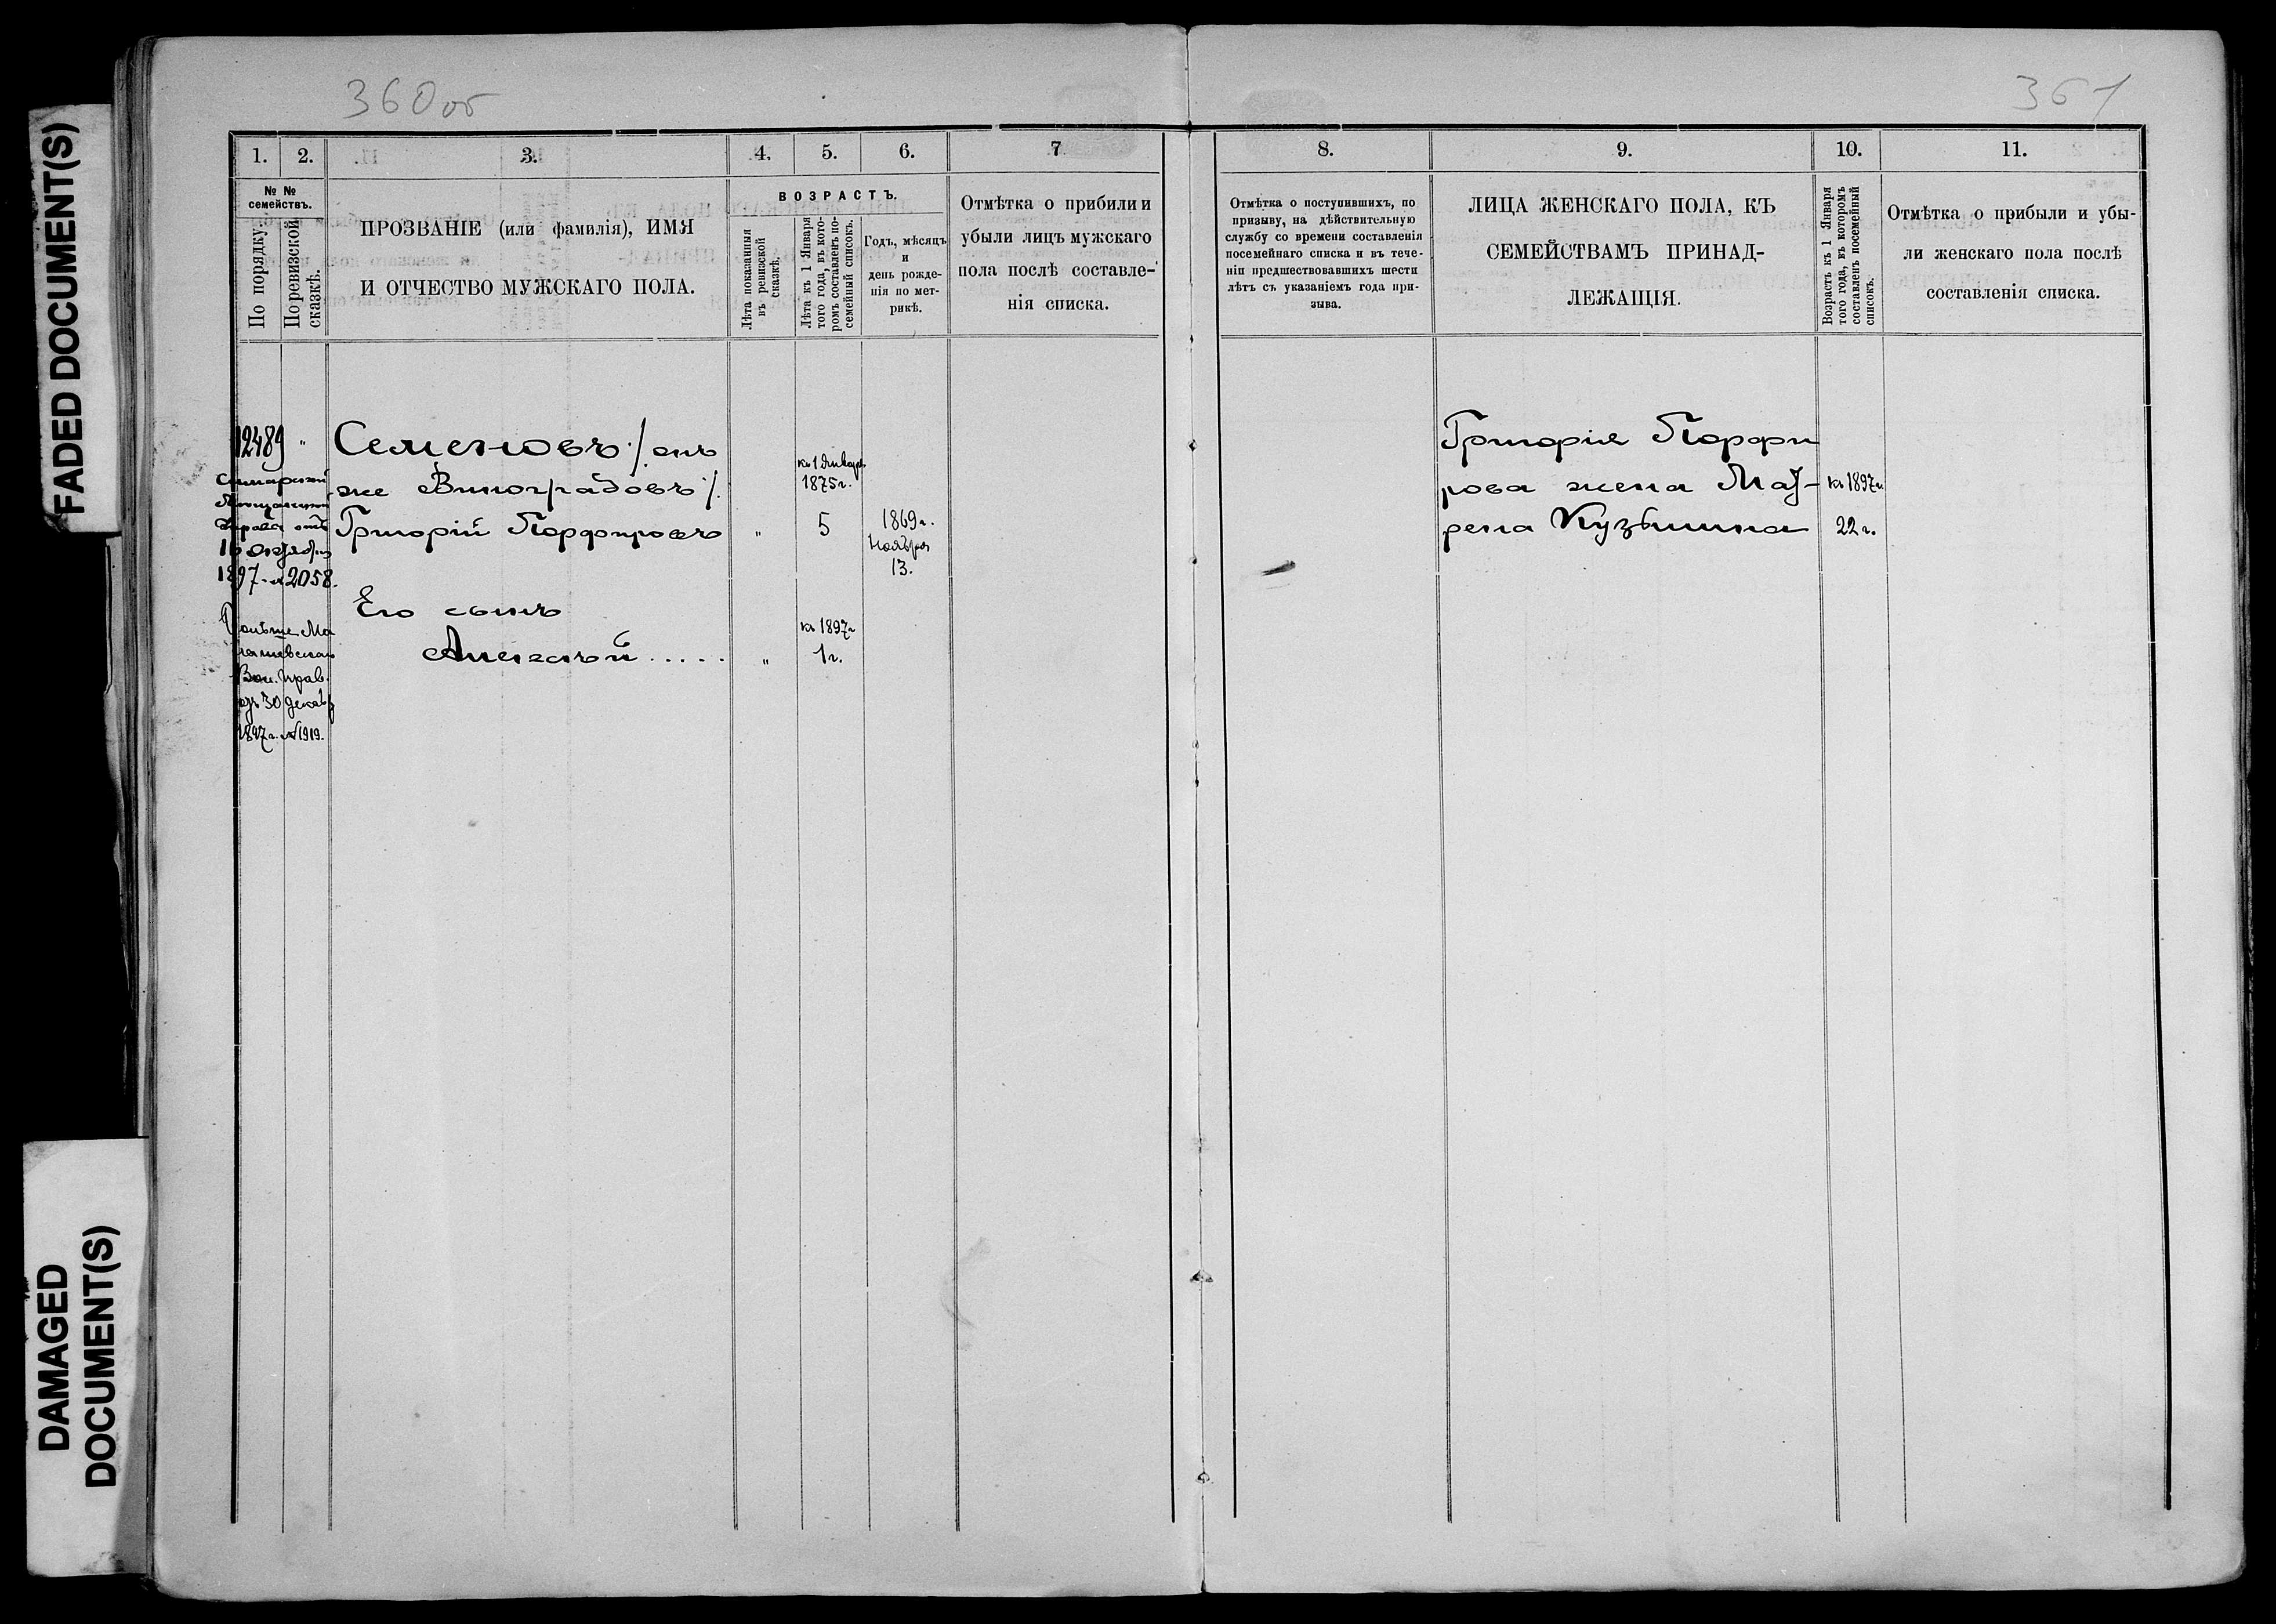 FADED DOCUMENT(S)
DAMAGED
DOCUMENT(S)
360 об
361
1.
2.
3.
4.
5.
6.
7
№ №
семействъ.
По порядку.
По ревизской
сказкѣ.
ПРОЗВАНІЕ (или фамилія), ИМЯ
И ОТЧЕСТВО МУЖСКАГО ПОЛА.
ВОЗРАСТЪ.
Лѣта показанныя
въ ревизской
сказкѣ.
Лѣта къ 1 Января
того года, въ кото-
ромъ составленъ по-
семейный списокъ.
Годъ, мѣсяцъ
и
день рожде-
нія по мет-
рикѣ.
Отмѣтка о прибыли и
убыли лицъ мужскаго
пола послѣ составле-
нія списка.
12489 "
Самарской
Мѣщанской
Управы отъ
16 октября
1897 № 2058.
Вол. Прав.
отъ 30 декабр
1897 г. № 1919.
Семеновъ /. онъ
же Виноградовъ /.
Григорій Порфировъ "
къ 1 Января
1875 г.
5
1869 г.
Ноября
13.
Его сынъ
Алексѣй ..... "
къ 1897 г
1 г.
8.
9.
10.
11.
Отмѣтка о поступившихъ, по
призыву, на дѣйствительную
службу со времени составленія
посемейнаго списка и въ тече-
ніи предшествовавшихъ шести
лѣтъ съ указаніемъ года при-
зыва.
ЛИЦА ЖЕНСКАГО ПОЛА, КЪ
СЕМЕЙСТВАМЪ ПРИНАД-
ЛЕЖАЩІЯ.
Возрастъ къ 1 Января
того года, въ которомъ
составленъ посемейный
списокъ.
Отмѣтка о прибыли и убы-
ли женскаго пола послѣ
составленія списка.
Григорія Порфи
рова жена Мав-
рена Кузьмина
къ 1897 г.
22 г.